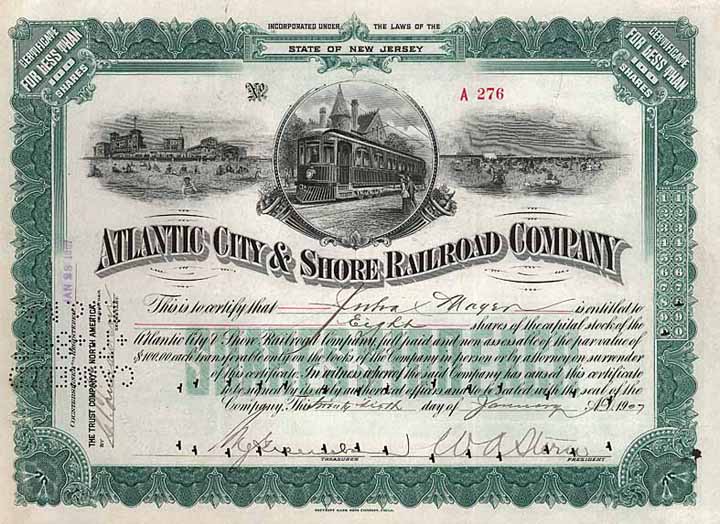 INCORPORATED UNDER THE LAWS OF THE
STATE OF NEW JERSEY
CERTIFICATE
FOR LESS THAN
100
SHARES
CERTIFICATE
FOR LESS THAN
100
SHARES
No
A 276
ATLANTIC CITY & SHORE RAILROAD COMPANY
This is to certify that Mayer is entitled to
Eight shares of the capital stock of the
Atlantic City & Shore Railroad Company, full paid and non assessable of the par value of
$100.00 each transferable only on the books of the Company in person or by attorney on surrender
of this certificate. In witness whereof the said Company has caused this certificate
to be signed by its duly authorized officers and to be sealed with the seal of the
Company, This twenty sixth day of January A.D. 1907
TREASURER
PRESIDENT
COUNTERSIGNED AND REGISTERED
THE TRUST COMPANY OF NORTH AMERICA.
BY
JAN 28 1907